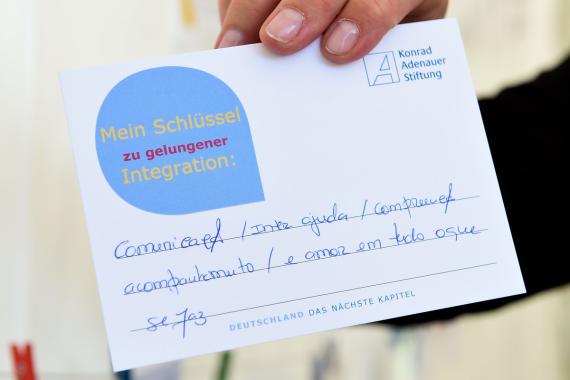 Konrad
Adenauer
Stiftung
Mein Schlüssel
zu gelungener
Integration:
/ Inter ajuda /
/ e amor em tudo o que
se faz
DEUTSCHLAND DAS NÄCHSTE KAPITEL